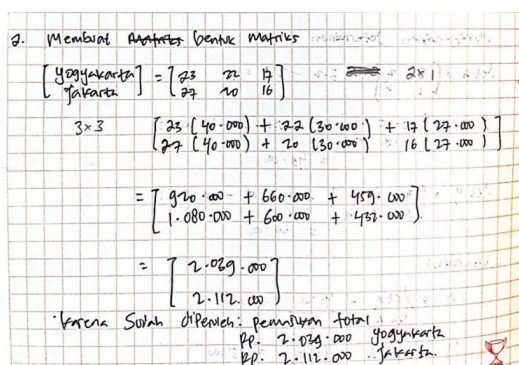 2. Membuat bentuk Matriks
[Yogyakarta] = [23 22 17] 2x1
[Jakarta] [27 20 16]
3x3 [23 (40.000) + 22 (30.000) + 17 (27.000)]
[27 (40.000) + 20 (30.000) 16 (27.000)]
= [920.000 + 660.000 + 459.000]
[1.080.000 + 600.000 + 432.000]
= [2.039.000]
[2.112.000]
Karena Sudah diperoleh: pemasukan total
Rp. 2.039.000 Yogyakarta
Rp. 2.112.000 Jakarta.